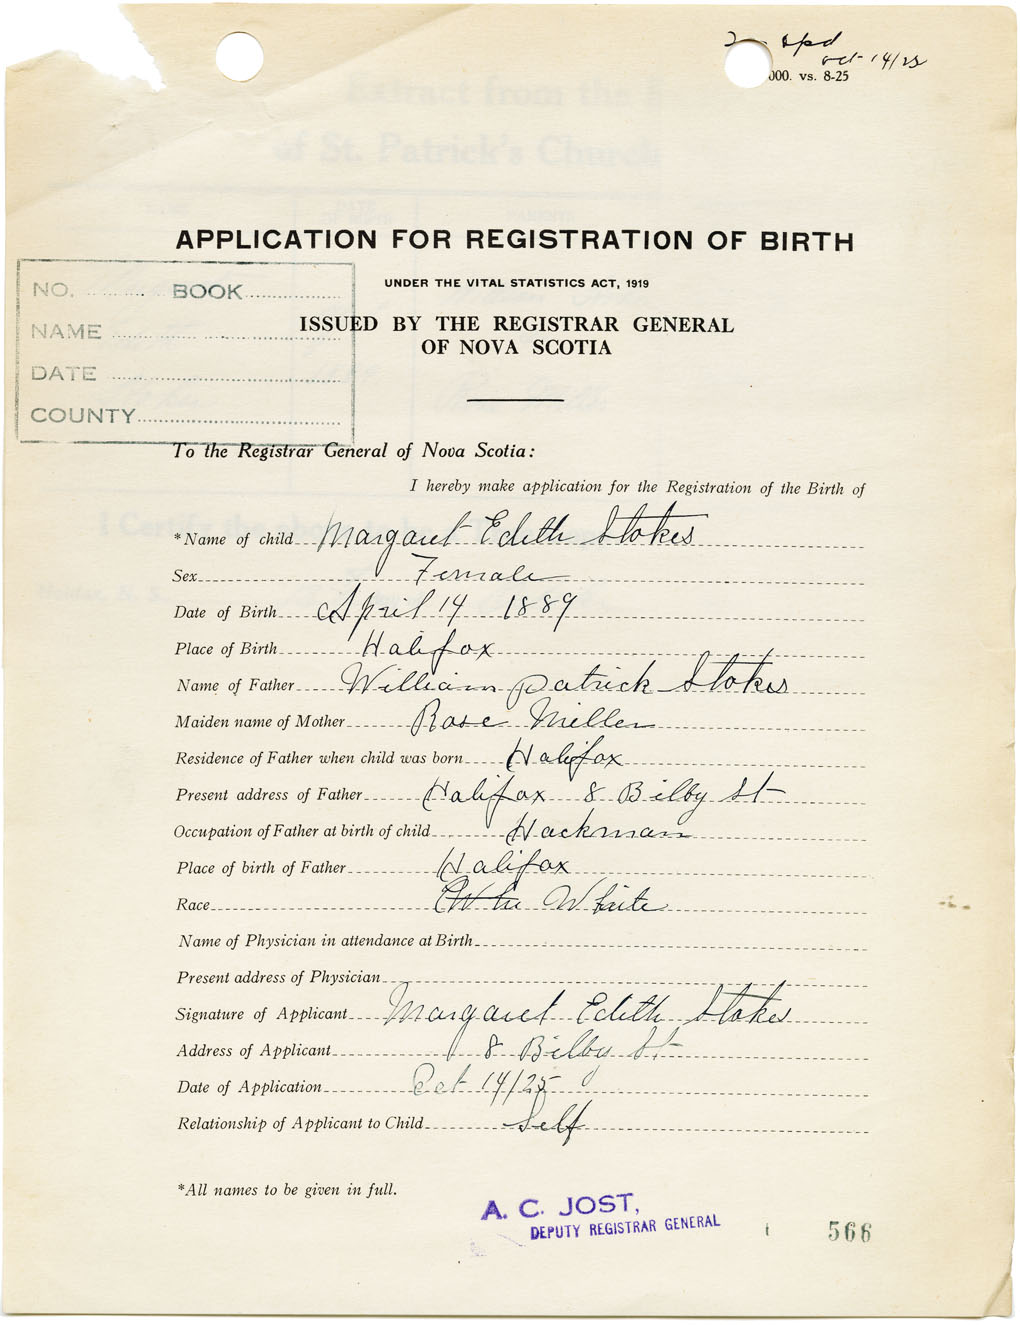 spd
oct 14/25
000. vs. 8-25
APPLICATION FOR REGISTRATION OF BIRTH
UNDER THE VITAL STATISTICS ACT, 1919
ISSUED BY THE REGISTRAR GENERAL
OF NOVA SCOTIA
NO. BOOK
NAME
DATE
COUNTY
To the Registrar General of Nova Scotia:
I hereby make application for the Registration of the Birth of
*Name of child Margaret Edith Stokes
Sex Female
Date of Birth April 14 1889
Place of Birth Halifax
Name of Father William Patrick Stokes
Maiden name of Mother Rose Miller
Residence of Father when child was born Halifax
Present address of Father Halifax 8 Bilby St
Occupation of Father at birth of child Hackman
Place of birth of Father Halifax
Race Whi White
Name of Physician in attendance at Birth
Present address of Physician
Signature of Applicant Margaret Edith Stokes
Address of Applicant 8 Bilby St
Date of Application Oct 14/25
Relationship of Applicant to Child Self
*All names to be given in full.
A. C. JOST,
DEPUTY REGISTRAR GENERAL
566